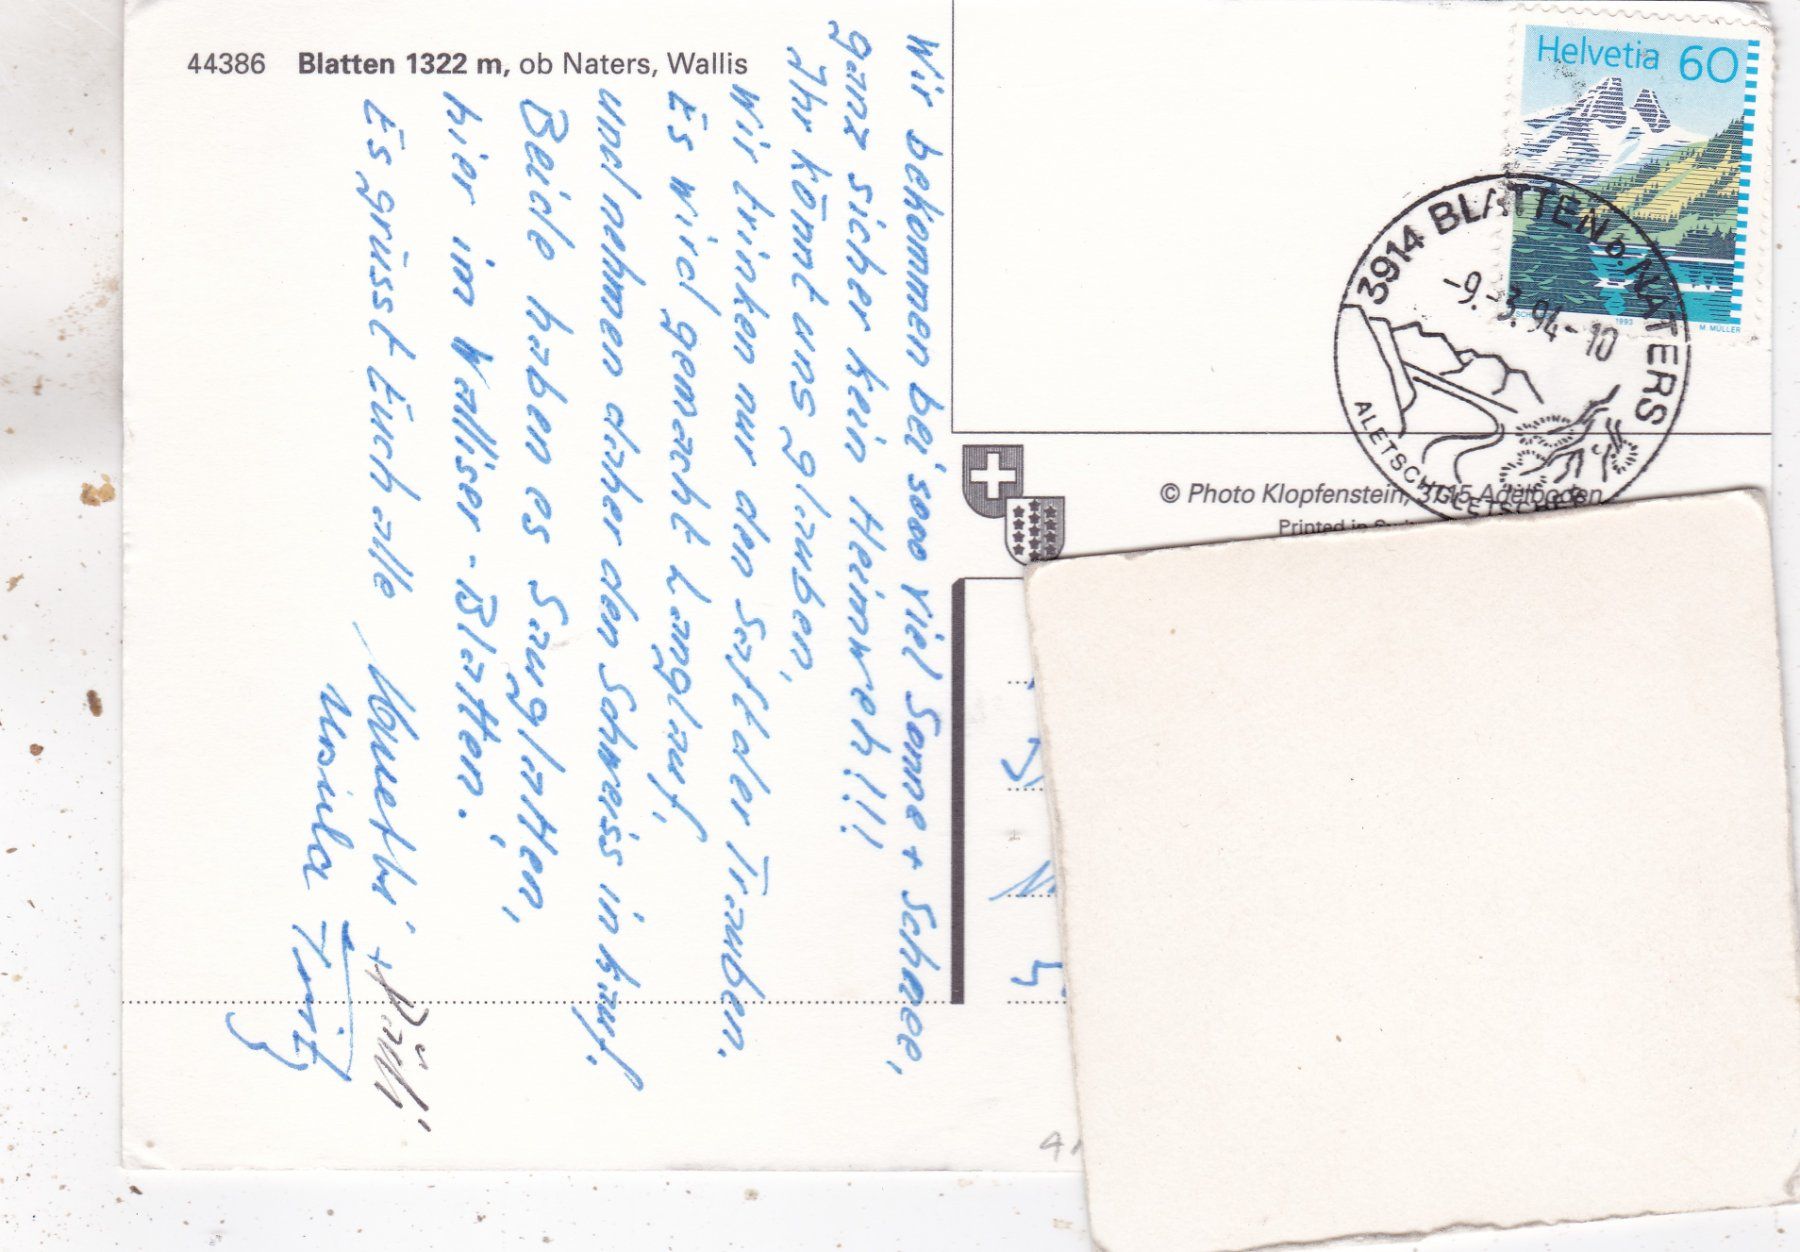 44386 Blatten 1322 m, ob Naters, Wallis
Wir bekommen bei sooo viel Sonne + Schnee,
ganz sicher kein Heimweh!!!
Ihr könnt uns glauben,
Wir trinken nur den Saft der Trauben.
Es wird gemacht Langlauf,
und nehmen daher den Schweiss in kauf.
Beide haben es Sauglatten,
hier im Walliser-Blatten.
Es grüsst Euch alle
+
Ursula Fritz
Helvetia 60
1993
M. MÜLLER
3914 BLATTEN b. NATERS
-9.-3.94-10
ALETSCHGLETSCHER
© Photo Klopfenstein, 3715 Adelboden
Printed in